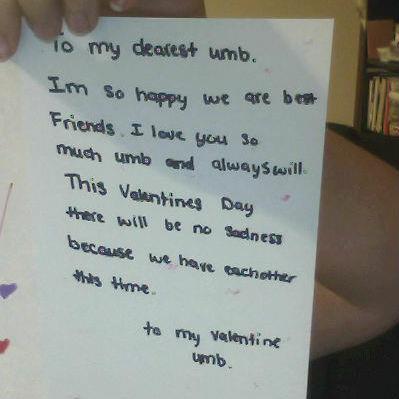 To my dearest umb.
Im so happy we are best
Friends. I love you so
much umb and always will.
This Valentines Day
there will be no sadness
because we have eachother
this time.
to my valentine
umb.